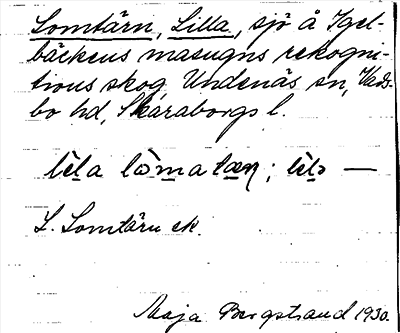 Lomtärn, Lilla, sjö å Igel-
bäckens masugns rekogni-
tions skog, Undenäs sn, Vads-
bo hd, Skaraborgs l.
lìl̠a lòm̠a tæṇ; lìl̠ə —
L. Lomtärn ek.
Maja Bergstrand 1930.